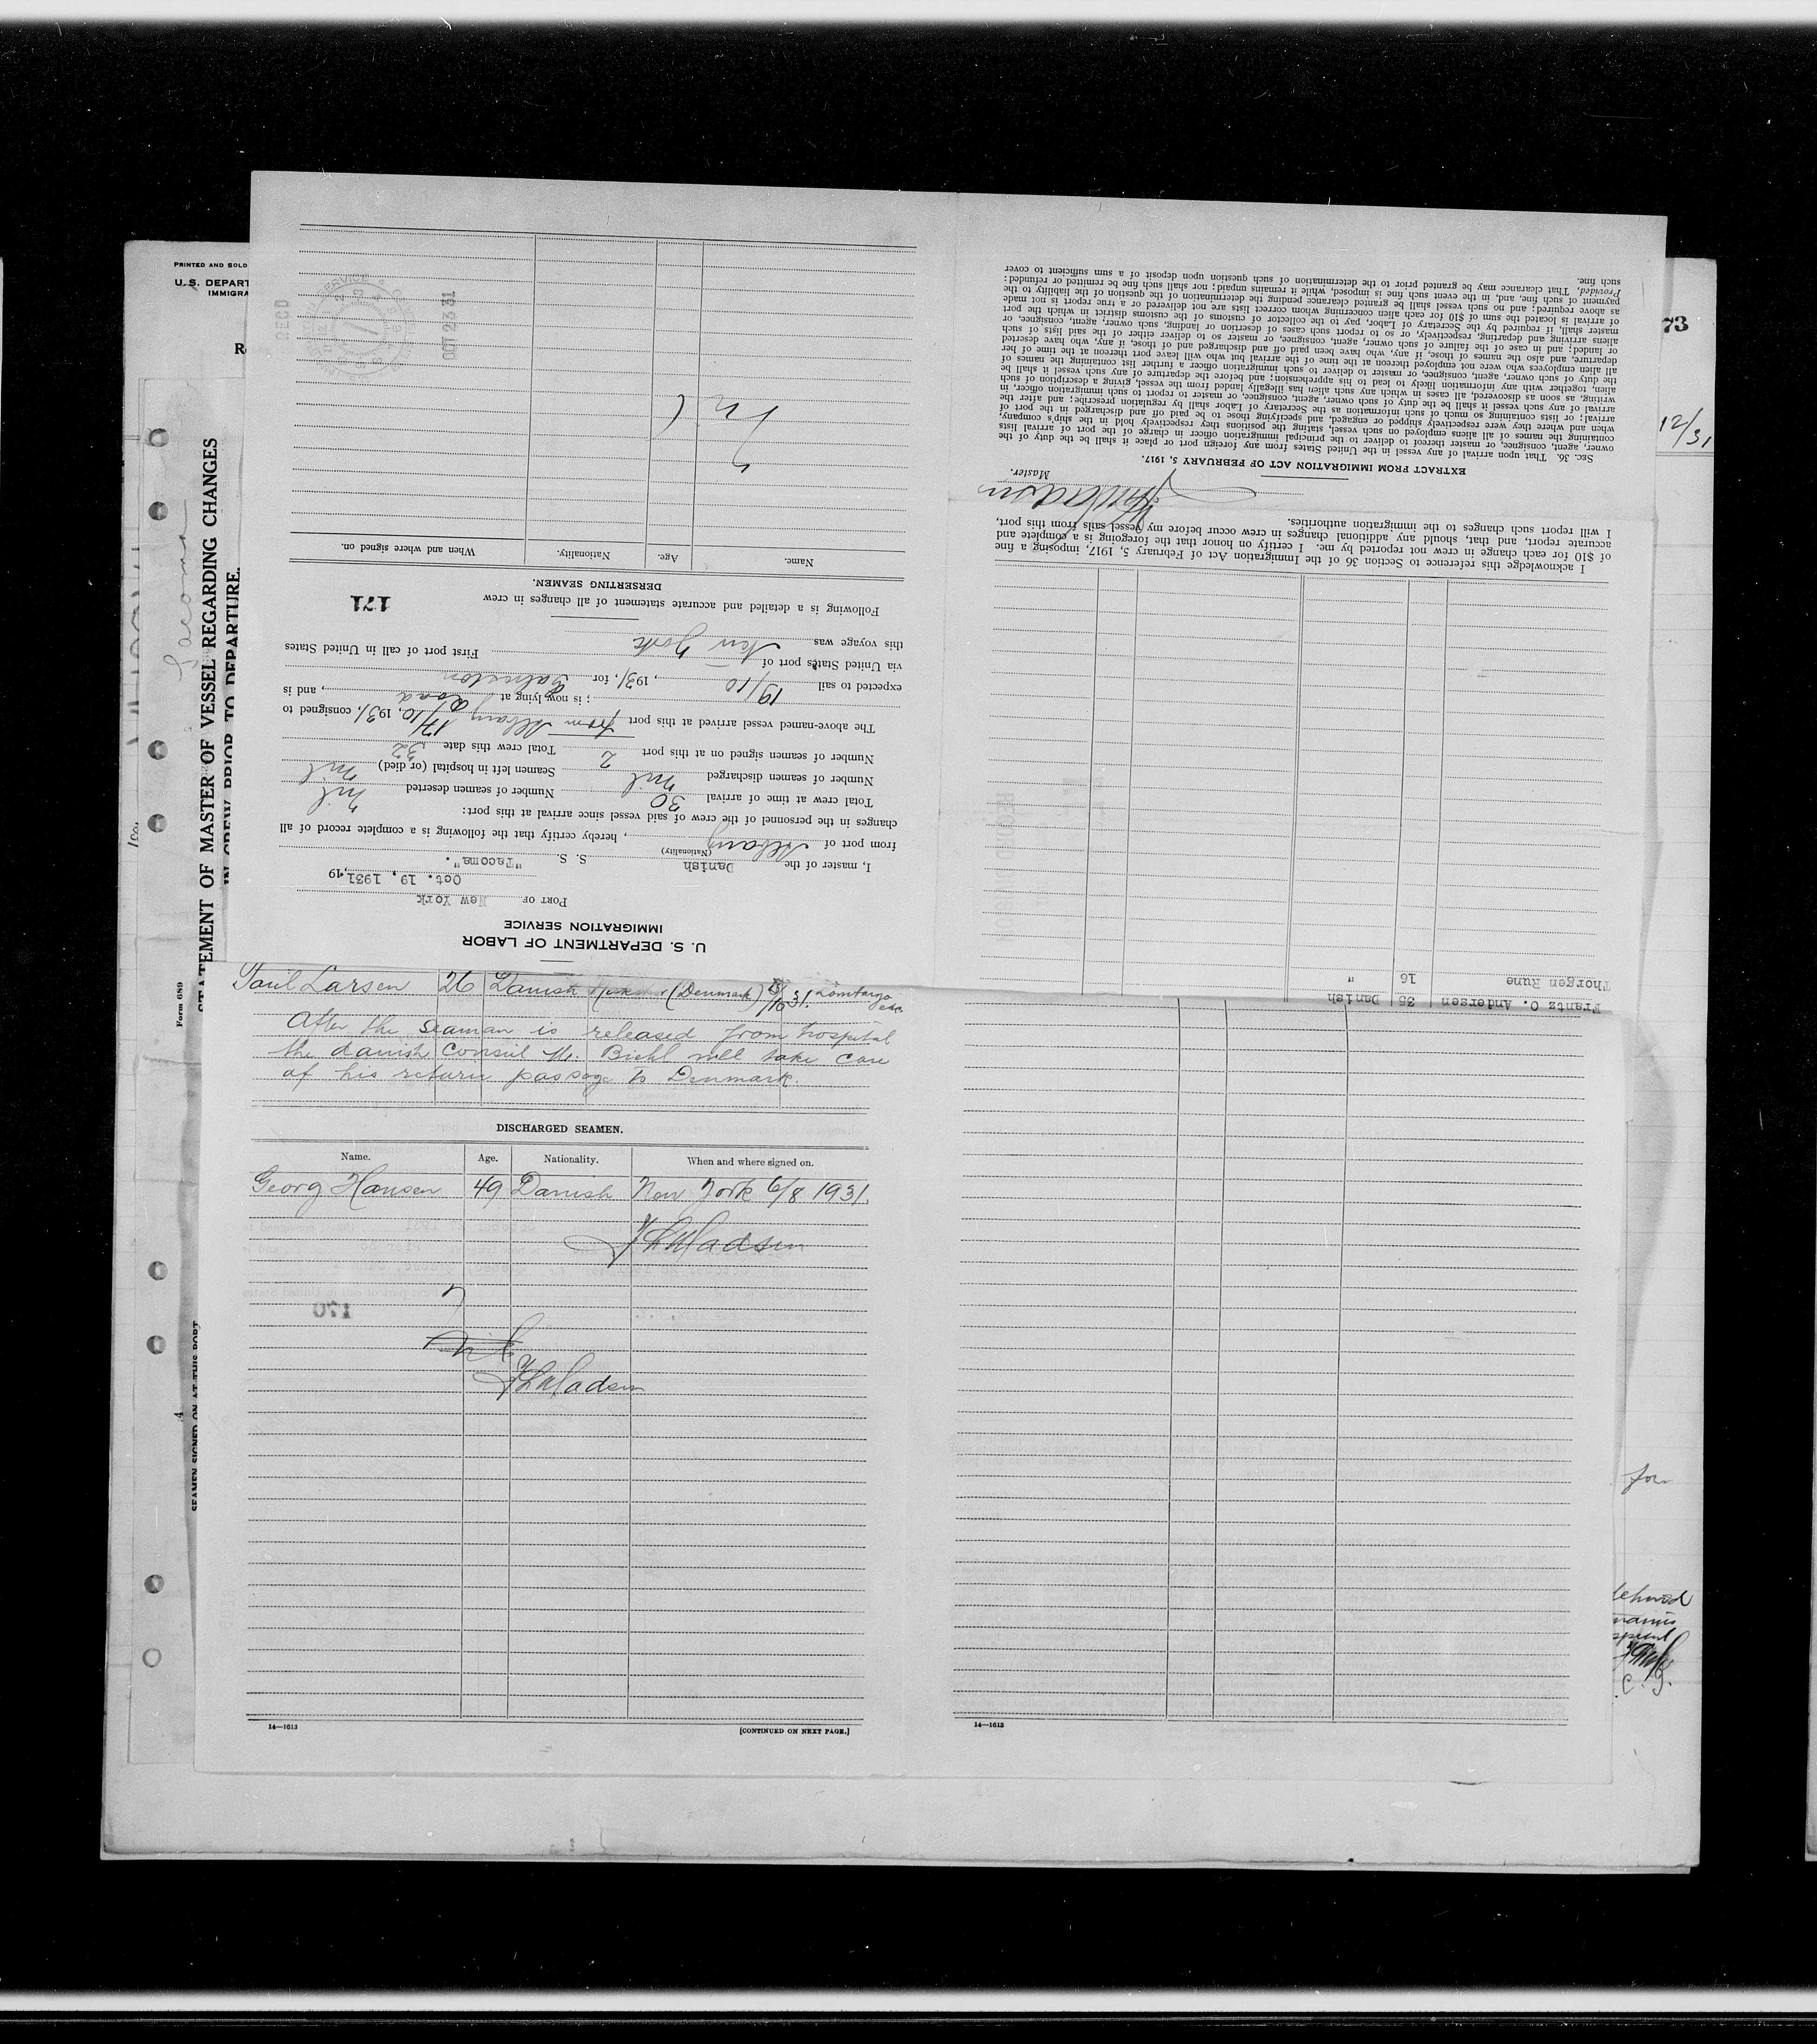 PRINTED AND SOLD
U. S. DEPART
IMMIGRA
R
73
12/31
STATEMENT OF MASTER OF VESSEL REGARDING CHANGES
IN CREW PRIOR TO DEPARTURE.
Tacoma
Form 689
SEAMEN SIGNED ON AT THIS PORT
U. S. DEPARTMENT OF LABOR
IMMIGRATION SERVICE
PORT OF New York
Oct. 19, 1931, 19
I, master of the Danish S. S. "Tacoma".
(Nationality)
from port of Albany, hereby certify that the following is a complete record of all
changes in the personnel of the crew of said vessel since arrival at this port:
Total crew at time of arrival 30 Number of seamen deserted Nil
Number of seamen discharged Nil Seamen left in hospital (or died) Nil
Number of seamen signed on at this port 2 Total crew this date 32
The above-named vessel arrived at this port from Albany 17/10, 1931, consigned to
; is now lying at , and is
expected to sail 19/10, 1931, for Galveston
via United States port of
this voyage was New York First port of call in United States
Following is a detailed and accurate statement of all changes in crew
171
DERSERTING SEAMEN.
Name. Age. Nationality. When and where signed on.
REC'D
OCT 23 31
Frantz O. Andersen 35 Danish
Thorgen Rune 16 "
I acknowledge this reference to Section 36 of the Immigration Act of February 5, 1917, imposing a fine
of $10 for each change in crew not reported by me. I certify on honor that the foregoing is a complete and
accurate report, and that, should any additional changes in crew occur before my vessel sails from this port,
I will report such changes to the immigration authorities.
Madsen
Master.
EXTRACT FROM IMMIGRATION ACT OF FEBRUARY 5, 1917.
SEC. 36. That upon arrival of any vessel in the United States from any foreign port or place it shall be the duty of the
owner, agent, consignee, or master thereof to deliver to the principal immigration officer in charge of the port of arrival lists
containing the names of all aliens employed on such vessel, stating the positions they respectively hold in the ship's company,
when and where they were respectively shipped or engaged, and specifying those to be paid off and discharged in the port of
arrival; or lists containing so much of such information as the Secretary of Labor shall by regulation prescribe; and after the
arrival of any such vessel it shall be the duty of such owner, agent, consignee, or master to report to such immigration officer, in
writing, as soon as discovered, all cases in which any such alien has illegally landed from the vessel, giving a description of such
alien, together with any information likely to lead to his apprehension; and before the departure of any such vessel it shall be
the duty of such owner, agent, consignee, or master to deliver to such immigration officer a further list containing the names of
all alien employees who were not employed thereon at the time of the arrival but who will leave port thereon at the time of her
departure, and also the names of those, if any, who have been paid off and discharged and of those, if any, who have deserted
or landed; and in case of the failure of such owner, agent, consignee, or master so to deliver either of the said lists of such
aliens arriving and departing, respectively, or so to report such cases of desertion or landing, such owner, agent, consignee, or
master shall, if required by the Secretary of Labor, pay to the collector of customs of the customs district in which the port
of arrival is located the sum of $10 for each alien concerning whom correct lists are not delivered or a true report is not made
as above required; and no such vessel shall be granted clearance pending the determination of the question of the liability to the
payment of such fine, and, in the event such fine is imposed, while it remains unpaid; nor shall such fine be remitted or refunded:
Provided, That clearance may be granted prior to the determination of such question upon deposit of a sum sufficient to cover
such fine.
Paul Larsen 26 Danish (Denmark) Lombargo
After the seaman is released from hospital
the danish Consul Mr. Biehl will take care
of his return passage to Denmark.
DISCHARGED SEAMEN.
Name. Age. Nationality. When and where signed on.
Georg Hansen 49 Danish New York 6/8 1931.
Madsen
170
Nil
Madsen
14—1613 [CONTINUED ON NEXT PAGE.]
14—1613
for